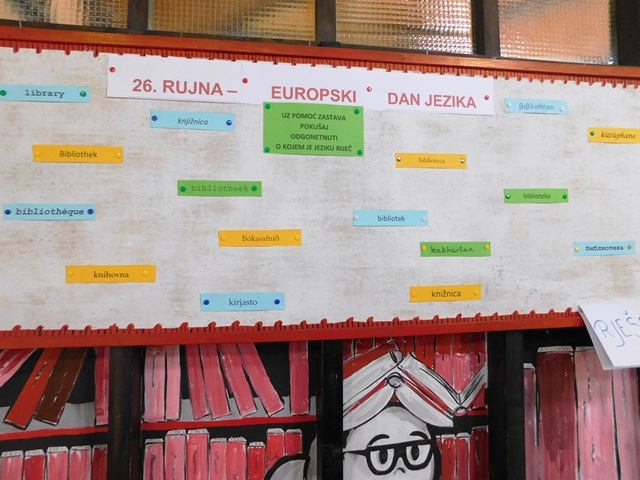 26. RUJNA – EUROPSKI DAN JEZIKA
UZ POMOĆ ZASTAVA
POKUŠAJ
ODGONETNUTI
O KOJEM JE JEZIKU RIJEČ
library
knjižnica
Bibliothek
biblioteca
kütüphane
bibliotheek
biblioteka
bibliothèque
bibliotek
Bókasafnið
библиотека
knihovna
kirjasto
knižnica